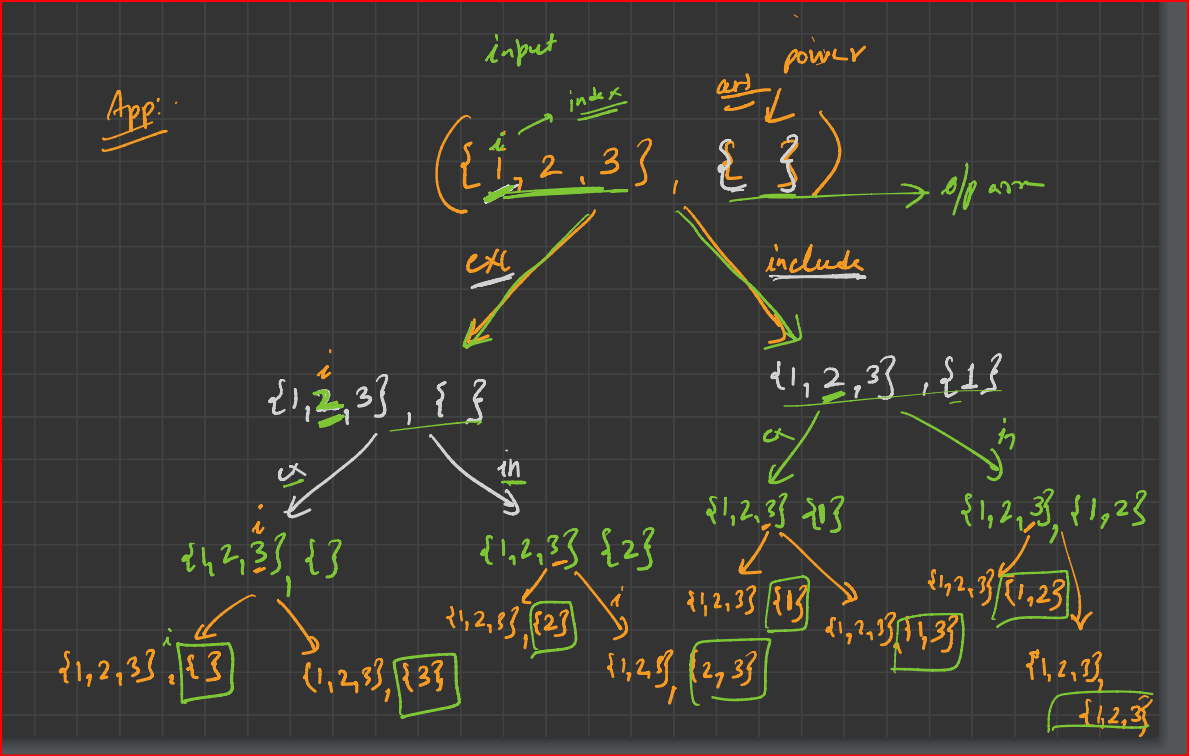 input
power
App:
index
arr
i
({1, 2, 3}, { })
O/p arr
exc
include
i
{1, 2, 3}, { }
{1, 2, 3}, {1}
ex
in
ex
in
i
{1, 2, 3}, { }
{1, 2, 3} {2}
{1, 2, 3} {1}
{1, 2, 3}, {1, 2}
i
{1, 2, 3}, { }
{1, 2, 3}, {3}
{1, 2, 3}, {2}
i
{1, 2, 3}, {2, 3}
{1, 2, 3} {1}
{1, 2, 3}, {1, 3}
{1, 2, 3} {1, 2}
{1, 2, 3},
{1, 2, 3}